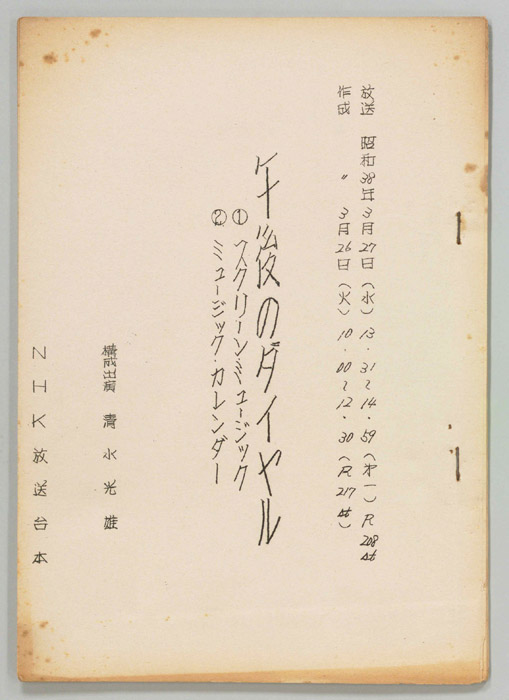 放送 昭和38年3月27日(水)13.31～14.59(第一)R208st
作成 〃 3月26日(火)10.00～12.30(R217st)
午後のダイヤル
①スクリーン・ミュージック
②ミュージック・カレンダー
構成出演 清水光雄
NHK放送台本